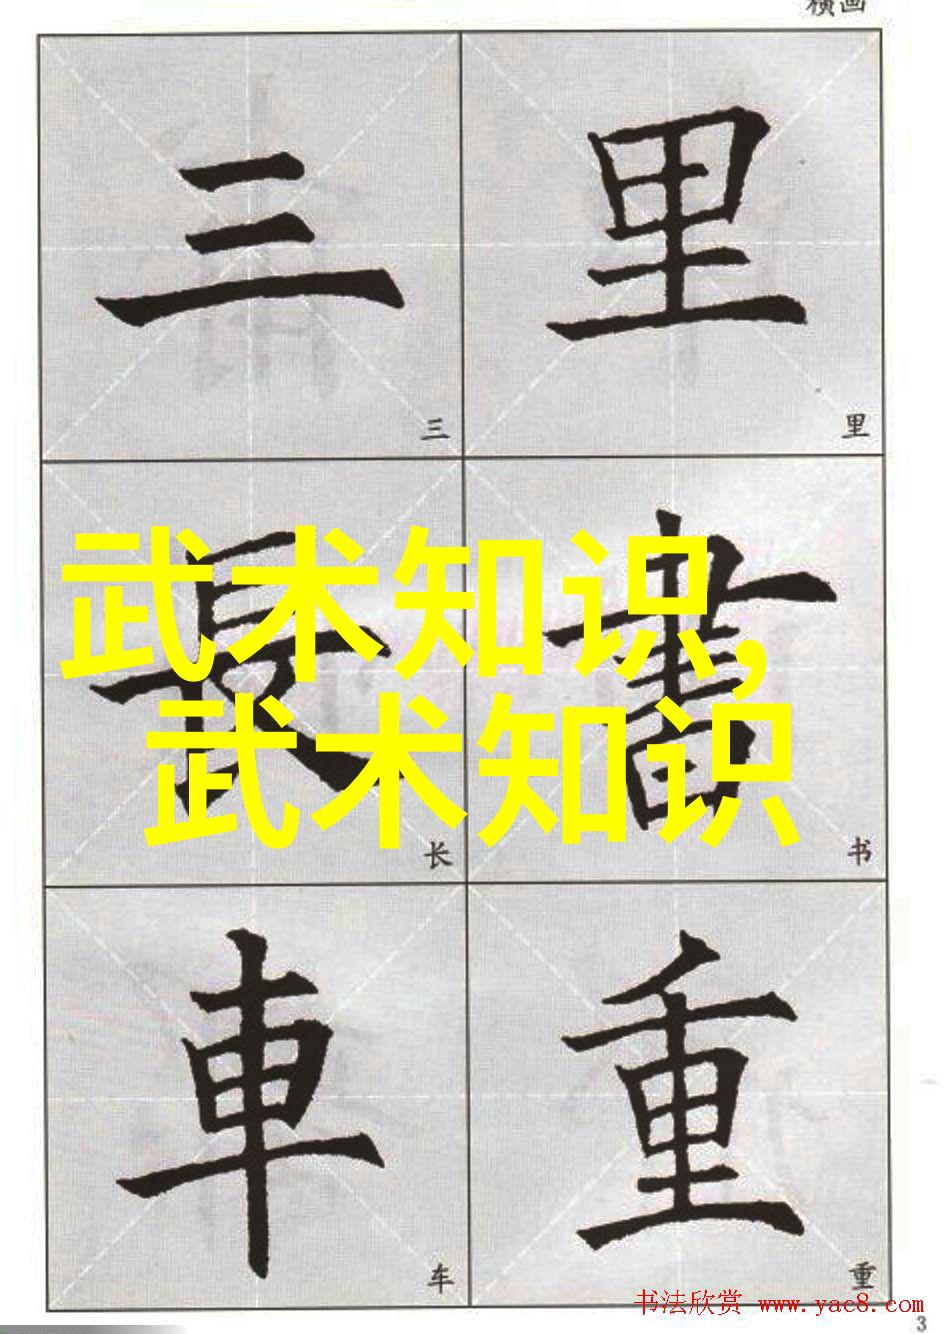 横画
三 里
三 里
武术知识,
武术知识
長 書
长 书
車 重
车 重
书法欣赏 www.yac8.com
3